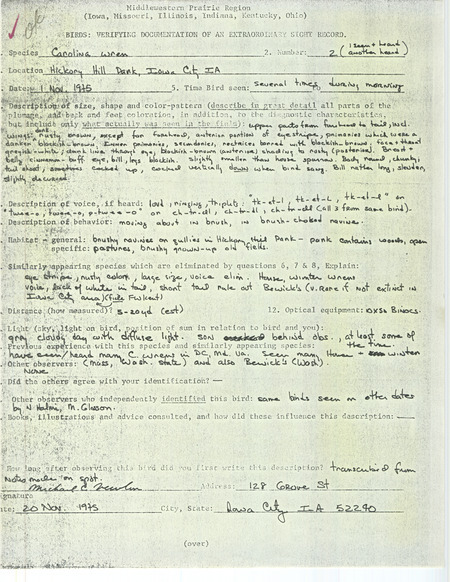 Middlewestern Prairie Region
(Iowa, Missouri, Illinois, Indiana, Kentucky, Ohio)
ok
BIRDS: VERIFYING DOCUMENTATION OF AN EXTRAORDINARY SIGHT RECORD.
Species Carolina wren 2. Number: 2 (1 seen + heard
another heard)
Location Hickory Hill Park, Iowa City IA
Date: 1 Nov. 1975 5. Time Bird seen: several times during morning
Description of size, shape and color-pattern (describe in great detail all parts of the
plumage, and beak and feet coloration, in addition, to the diagnostic characteristics,
but include only what actually was seen in the field): upper parts from forehead to tail, incl.
wings rusty brown, except for forehead, anterior portion of eyestripe, primaries which were a
darker blackish-brown. Inner primaries, secondaries, rectrices barred with blackish-brown; face + throat
greyish-white; dark line through eye, blackish-brown (anterior) shading to rusty (posterior). Breast +
belly cinnamon-buff. eye, bill, legs blackish. Slightly smaller than house sparrow. Body round, chunky;
tail short, sometimes cocked up, cocked vertically down when bird sang. Bill rather long, slender,
slightly decurved.
Description of voice, if heard: loud, ringing, triplets: tk-et-l, tk-et-l, tk-et-l" or
Description of behavior: moving about in brush, in brush-choked ravine.
Habitat - general: brushy ravines or gullies in Hickory Hill Park - park contains woods, open
specific: pastures, brushy grown-up old fields.
Similarly appearing species which are eliminated by questions 6, 7 & 8, Explain:
eye stripe, rusty color, large size, voice elim. House, winter wrens
voice, lack of white in tail, short tail rule out Bewick's (v. rare if not extinct in
Iowa City area)
Distance (how measured)? 5-20yd (est) 12. Optical equipment: 10x50 Binocs.
Light (sky, light on bird, position of sun in relation to bird and you):
grey cloudy day with diffuse light. sun behind obs., at least some of
the time.
Previous experience with this species and similarly appearing species:
have seen/heard many C. wrens in DC, Md, Va. Seen many House + winter
(Mass, Wash. State) and also Bewick's (Wash).
Other observers:
None.
Did the others agree with your identification? —
Other observers who independently identified this bird: same birds seen on other dates
by N. Halmi, M. Glasson.
Books, illustrations and advice consulted, and how did these influence this description: —
How long after observing this bird did you first write this description? transcribed from
notes made on spot.
Address: 128 Grove St
Signature
Date: 20 Nov. 1975 City, State: Iowa City IA 52240
(over)